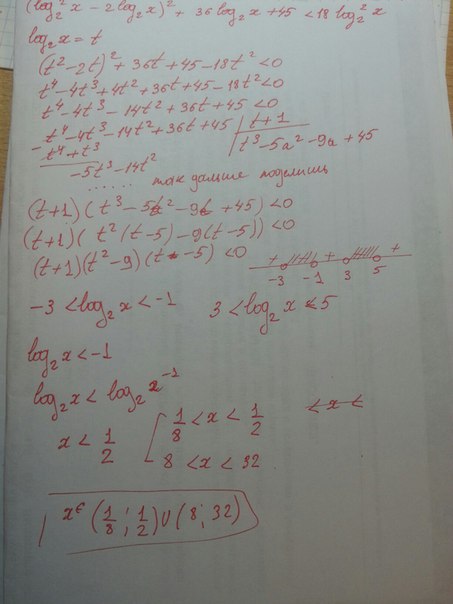 (log₂²x - 2log₂x)² + 36log₂x + 45 < 18log₂²x
log₂x = t
(t² - 2t)² + 36t + 45 - 18t² < 0
t⁴ - 4t³ + 4t² + 36t + 45 - 18t² < 0
t⁴ - 4t³ - 14t² + 36t + 45 < 0
- t⁴ - 4t³ - 14t² + 36t + 45 | t + 1
t⁴ + t³ | t³ - 5a² - 9a + 45
-5t³ - 14t²
...... так дальше поделишь
(t+1)(t³ - 5t² - 9t + 45) < 0
(t+1)(t²(t-5) - 9(t-5)) < 0
(t+1)(t²-9)(t-5) < 0
+ + +
-3 -1 3 5
-3 < log₂x < -1 3 < log₂x < 5
log₂x < -1
log₂x < log₂2⁻¹
x < 1/2 [ 1/8 < x < 1/2 < x <
8 < x < 32
x ∈ (1/8; 1/2) ∪ (8; 32)